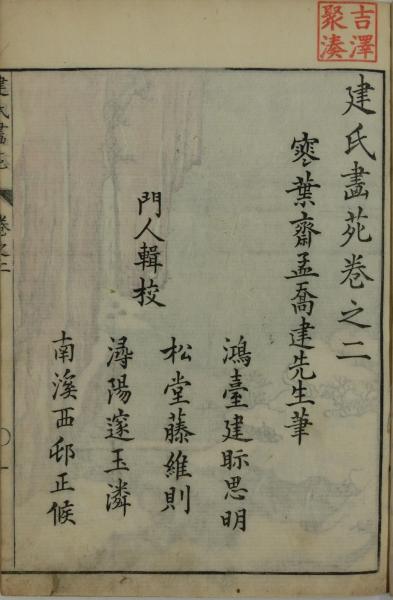 吉澤
聚湊
建氏畫苑卷之二
寒葉齋孟喬建先生筆
鴻臺建眎思明
門人輯校
松堂藤維則
潯陽邃玉潾
南溪西邨正候
建氏畫苑
卷之二